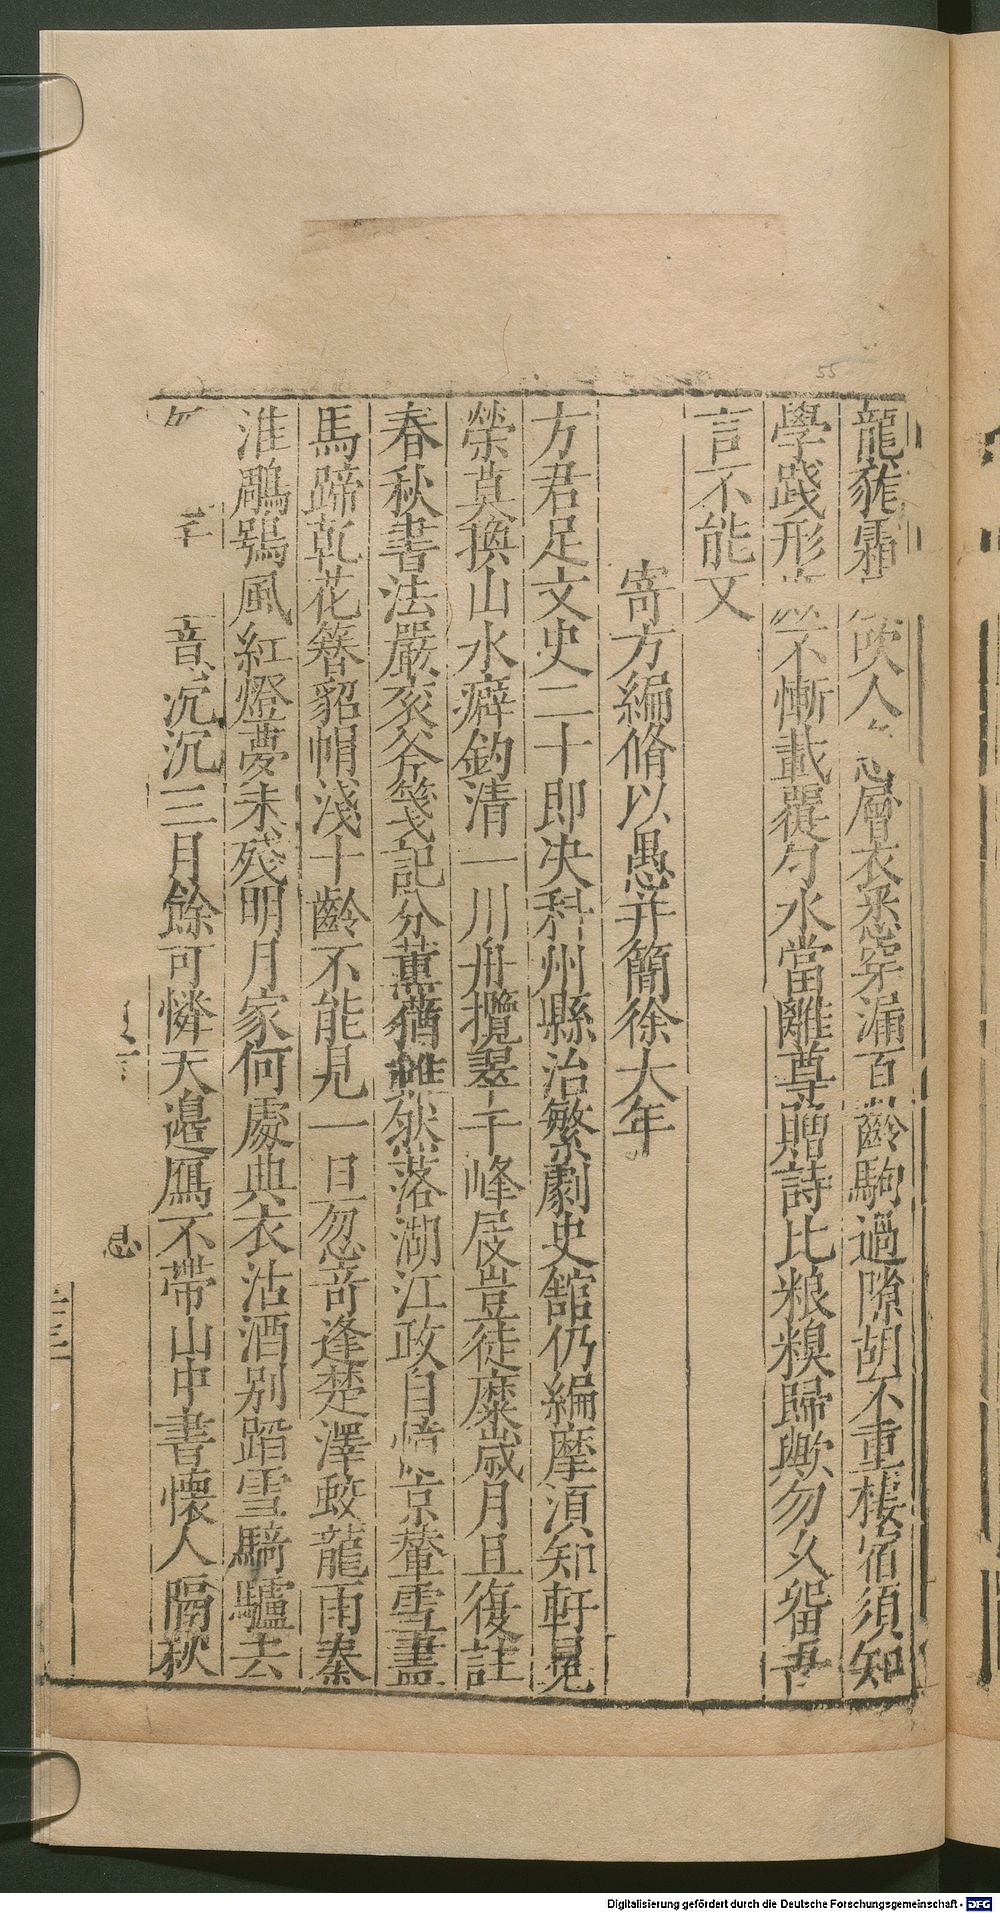 龍蘢霜吹人層衣悉穿漏百齡駒過隙胡不重棲宿須知
學踐形不慚載覆勺水當離尊贈詩比粮糗歸歟勿久留吾
言不能又
寄方編脩以愚并簡徐大年
方君足文史二十即决科州縣治繁劇史舘仍編摩湏知軒冕
榮莫換山水癖釣清一川舟攬翠千峰屐豈徒糜歳月且復註
春秋書法嚴衮斧箋記分薰蕕雖然落湖江政自憶京輦雪盡
馬蹄乾花簪貂帽淺十齡不能見一日忽奇逢楚澤蛟龍雨秦
淮鵰鶚風紅燈夢未殘明月家何處典衣沽酒别蹈雪騎驢去
音沉沉三月餘可憐天邉鴈不帶山中書懷人隔秋
55
Digitalisierung gefördert durch die Deutsche Forschungsgemeinschaft - DFG